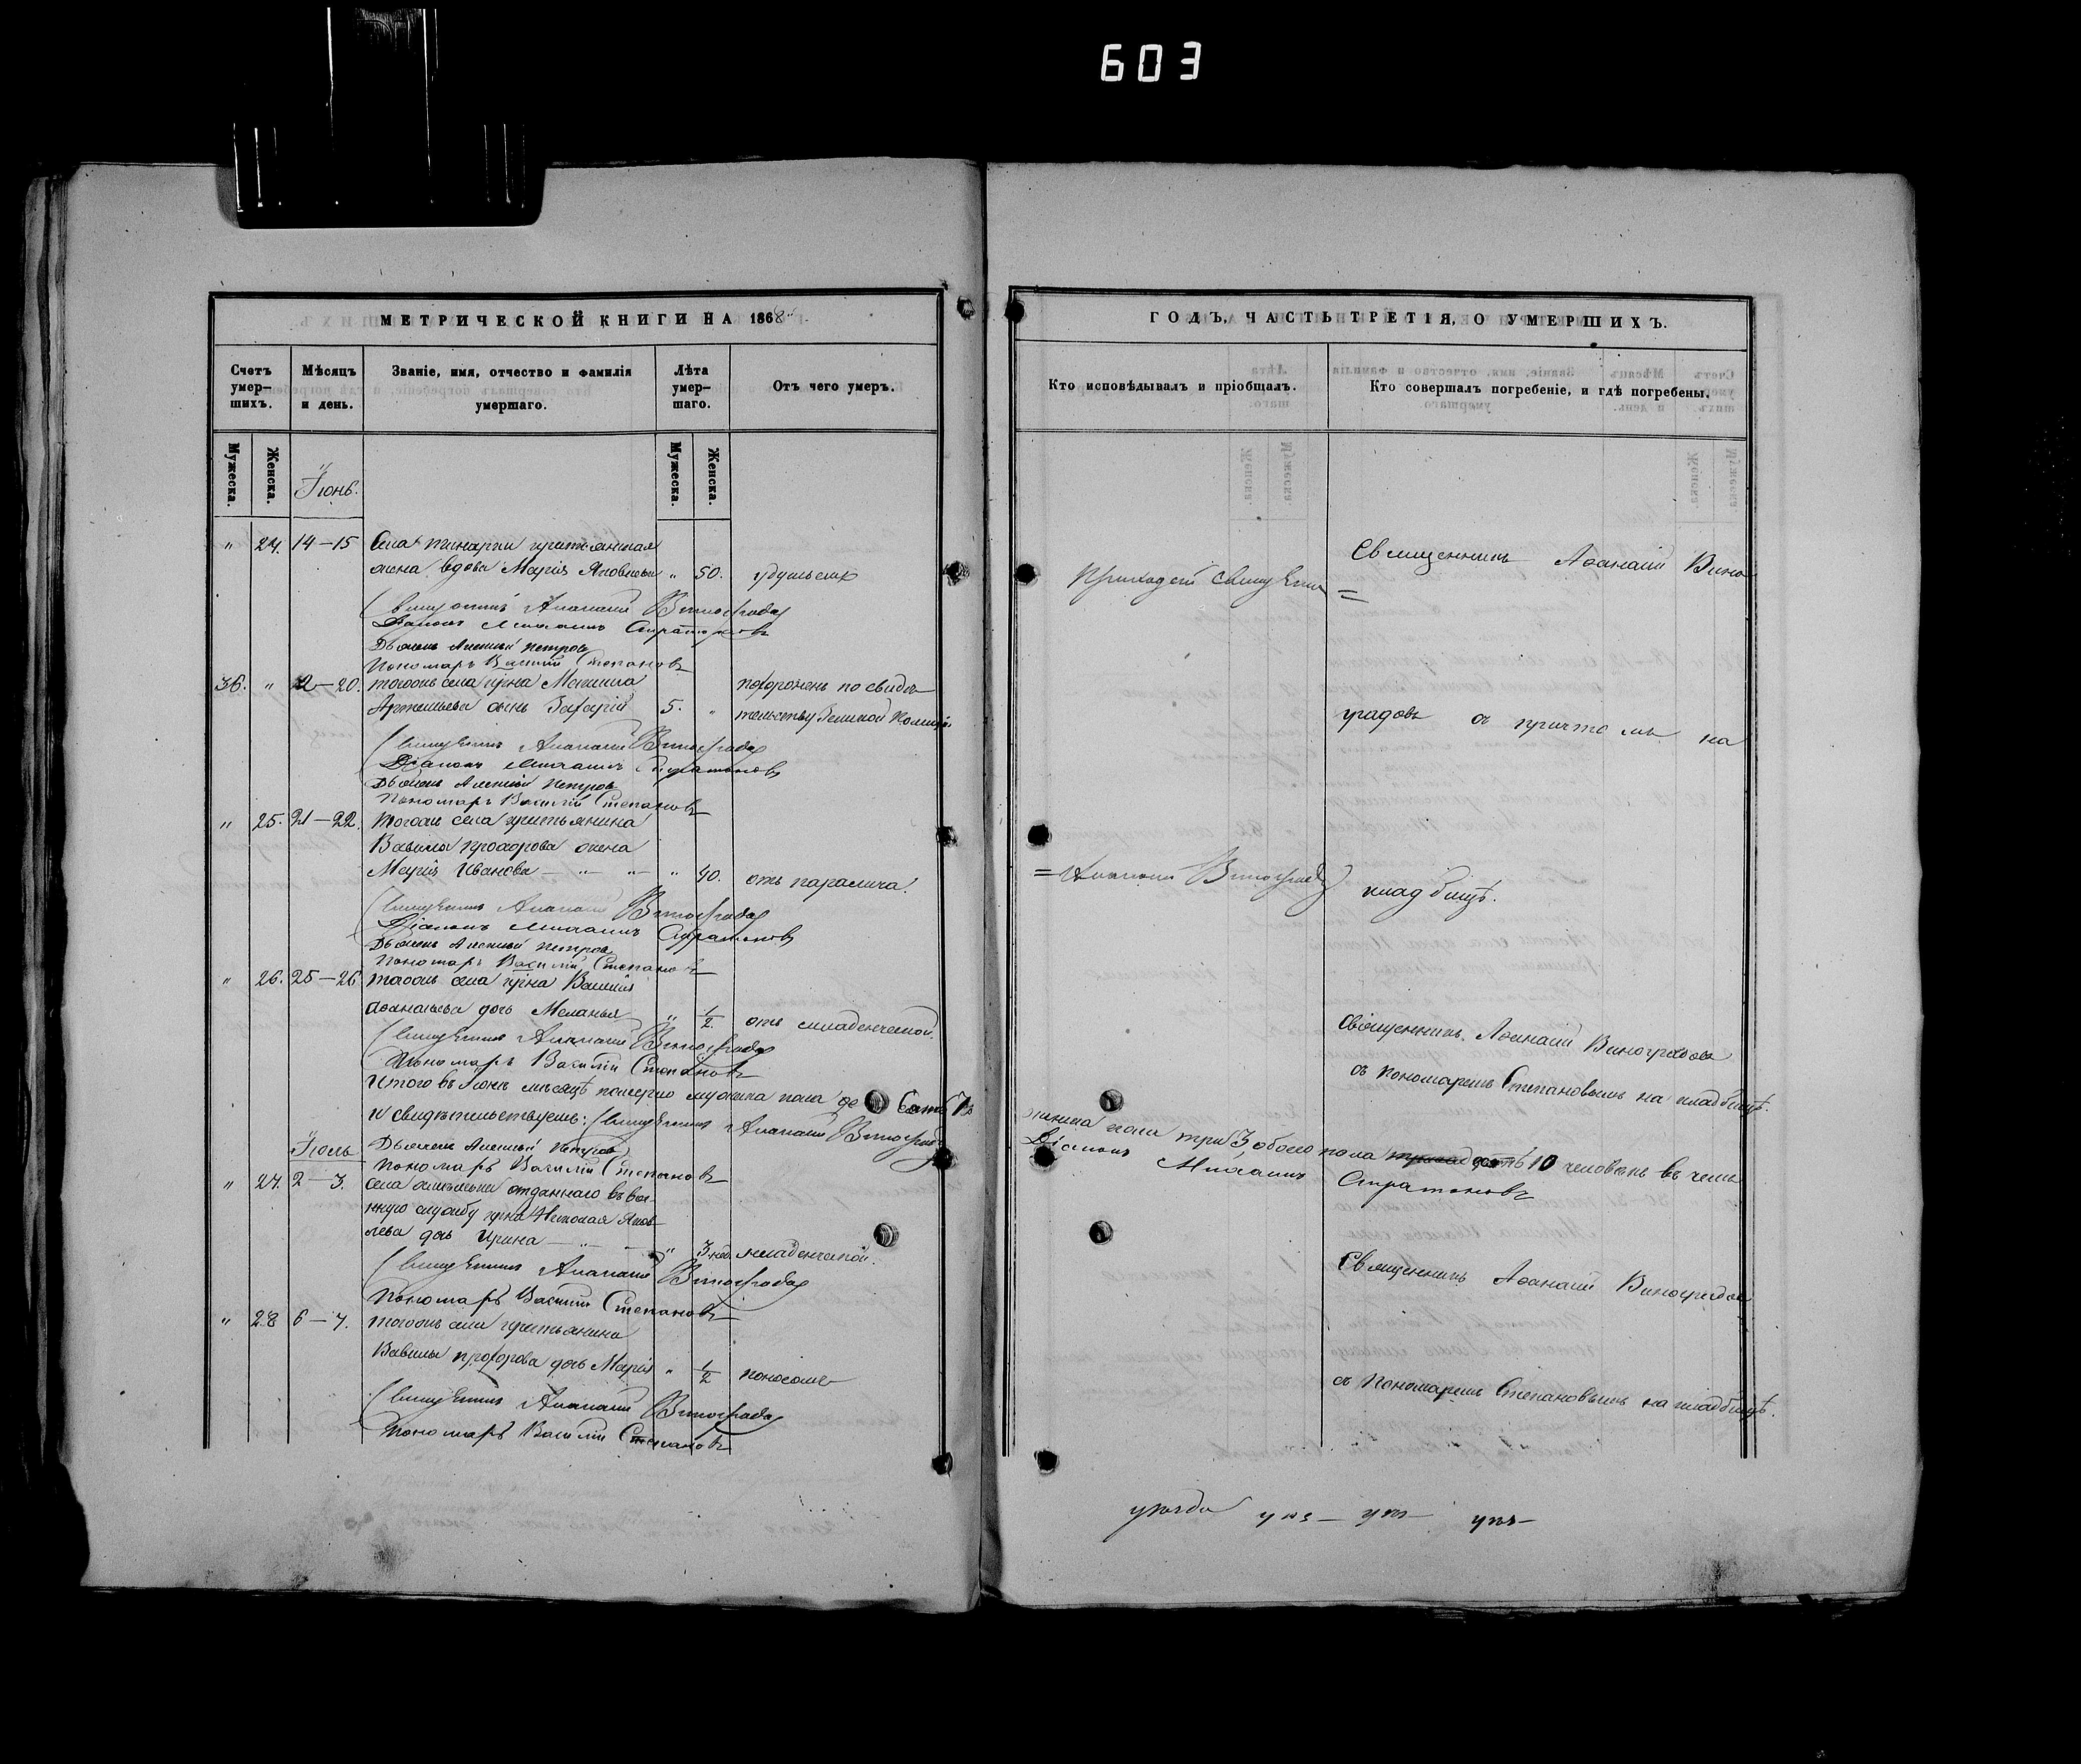 603
МЕТРИЧЕСКОЙ КНИГИ НА 1868
Счетъ умер-шихъ.
Мужеска.
Женска.
Мѣсяцъ и день.
Званіе, имя, отчество и фамилія умершаго.
Лѣта умер-шаго.
Мужеска.
Женска.
Отъ чего умеръ.
Іюнь.
" 24. 14–15 Села крестьянская
жена вдова Марія Яковлева " 50. удушьемъ
Священникъ Аѳанасій Виноградовъ
Діаконъ Михаилъ Стратоновъ
Дьячекъ Алексѣй Петровъ
Пономарь Василій Степановъ
36. " –20. тогожъ села кр̃на похороненъ по свидѣ-
Артемьева сынъ Захарій 5. " тельству Земской Полиціи.
Священникъ Аѳанасій Виноградовъ
Діаконъ Михаилъ Стратоновъ
Дьячекъ Алексѣй Петровъ
Пономарь Василій Степановъ
" 25. 21–22. тогожъ села крестьянина
Вавилы Прохорова жена
Марія Иванова – " – " – " 40. отъ паралича.
Священникъ Аѳанасій Виноградовъ
Діаконъ Михаилъ Стратоновъ
Дьячекъ Алексѣй Петровъ
Пономарь Василій Степановъ
" 26. 25–26 тогожъ села кр̃на Василія
Аѳанасьева дочь Меланья " 1/2 отъ младенческой.
Священникъ Аѳанасій Виноградовъ
Пономарь Василій Степановъ
Итого въ Іюнѣ мѣсяцѣ померло мужеска пола 7
и свидѣтельствуемъ: Священникъ Аѳанасій Виноградовъ
Іюль
Дьячекъ Алексѣй Петровъ
Пономарь Василій Степановъ
" 27. 2–3. села отданнаго въ вое-
нную службу кр̃на Николая Яков-
лева дочь Ирина – " – " 3 нед. младенческой.
Священникъ Аѳанасій Виноградовъ
Пономарь Василій Степановъ
" 28 6–7. тогожъ села крестьянина
Вавилы Прохорова дочь Марія " 1/2 поносомъ
Священникъ Аѳанасій Виноградовъ
Пономарь Василій Степановъ
ГОДЪ, ЧАСТЬ ТРЕТІЯ, О УМЕРШИХЪ.
Кто исповѣдывалъ и пріобщалъ.
Кто совершалъ погребеніе, и гдѣ погребены.
Священникъ Аѳанасій Вино
=
градовъ съ причтомъ на
= Аѳанасій Виноградовъ
кладбищѣ.
Священникъ Аѳанасій Виноградовъ
съ пономаремъ Степановымъ на кладбищѣ.
женска пола три 3, обоего пола 10 человѣкъ въ чемъ
Діаконъ Михаилъ Стратоновъ
Священникъ Аѳанасій Виноградовъ
съ Пономаремъ Степановымъ на кладбищѣ.